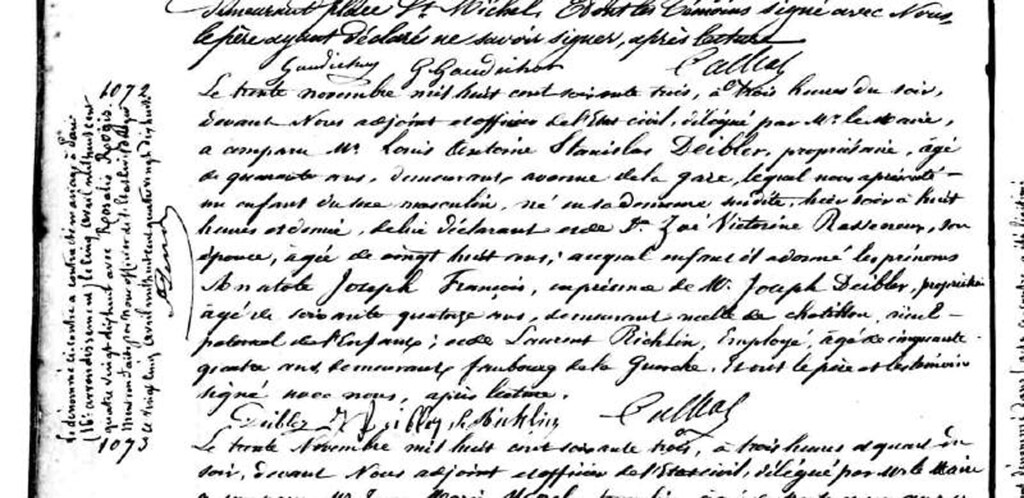 demeurant place St Michel, Et ont les témoins signé avec Nous,
le père ayant déclaré ne savoir signer, après lecture
G Gaudichon
1072
Le trente novembre mil huit cent soixante trois, à trois heures du soir,
devant Nous adjoint et officier de l'Etat civil, délégué par Mr. le Maire,
a comparu Mr. Louis Antoine Stanislas Deibler, propriétaire, âgé
de quarante ans, demeurant avenue de la gare, lequel nous a présenté
un enfant du sexe masculin, né en sa demeure susdite, hier soir à huit
heures et demie, de lui déclarant et de De. Zoé Victorine Rasseneux, son
épouse, âgée de vingt huit ans; auquel enfant il a donné les prénoms
Anatole Joseph François, en présence de Mr. Joseph Deibler, propriétaire
âgé de soixante quatorze ans, demeurant ruelle de chatillon, aïeul
paternel de l'Enfant; et de Laurent Richlin, Employé, âgé de cinquante
quatre ans, demeurant faubourg de la Guerche. Et ont le père et les témoins
signé avec nous, après lecture.
Deibler
Le dénommé ci-contre a contracté mariage à Paris
(16e arrondissement) le cinq avril mil huit cent
quatre vingt dix huit avec Rosalie Rogis.
Mention faite par nous officier de l'état civil
le vingt cinq avril mil huit cent quatre vingt dix huit
1073
Le trente Novembre mil huit cent soixante trois, à trois heures et quart du
soir, devant Nous adjoint et officier de l'Etat civil, délégué par Mr le Maire